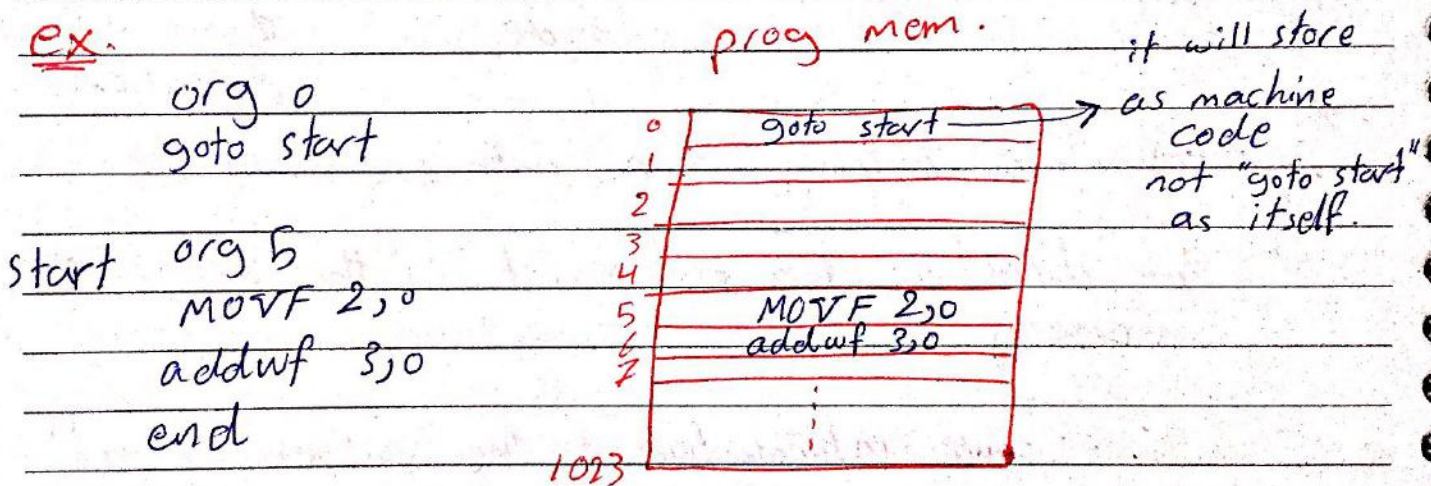 ex.
org 0
goto start
start org 5
MOVF 2,0
addwf 3,0
end
prog mem.
0 goto start
1
2
3
4
5 MOVF 2,0
6 addwf 3,0
7
1023
it will store
as machine
code
not "goto start"
as itself.